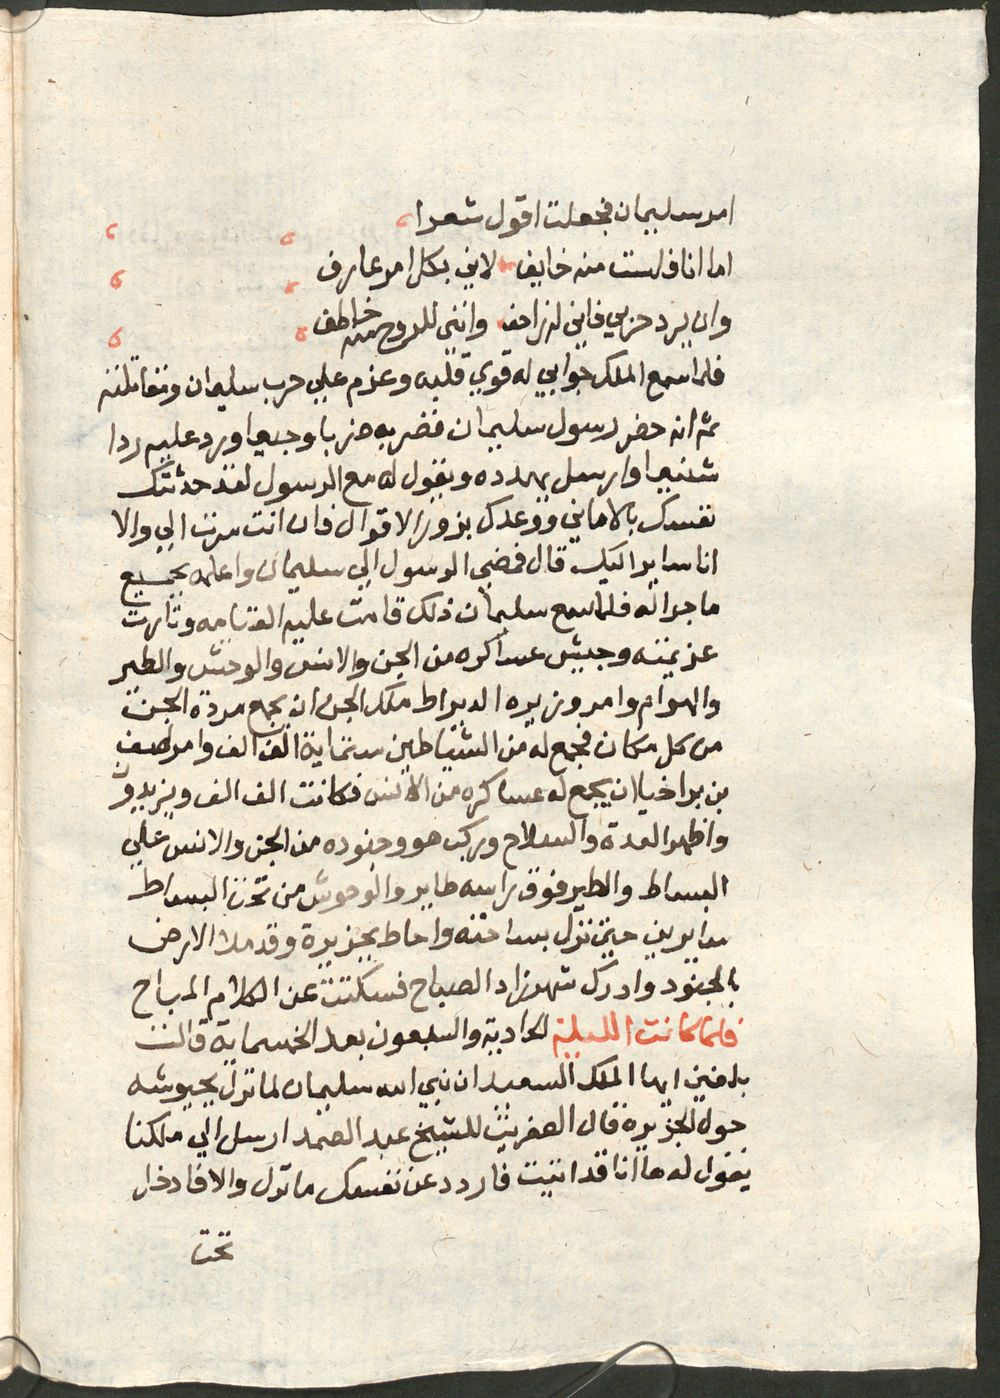 امر سليمان فجعلت اقول شعرا
اما انا فلست منه خايف لاني بكل امر عارف
وان يرد حربي فاني لزاحف وانني للروح منه خاطف
فلما سمع الملك جوابي له قوي قلبه وعزم علي حرب سليمان ومقاتلته
ثم انه حضر رسول سليمان فضربه ضربا وجيعا ورد عليه ردا
شنيعا وارسل يهدده ويقول له مع الرسول لقد حدثتك
نفسك بالاماني ووعدك بزور الاقوال فان انت سرت الي والا
انا ساير اليك قال فمضي الرسول الي سليمان واعلمه بجميع
ما جرا له فلما سمع سليمان ذلك قامت عليه القيامه وثارت
عزيمته وجيش عساكره من الجن والانس والوحش والطير
والهوام وامر وزيره الدمراط ملك الجن ان يجمع مردة الجن
من كل مكان فجمع له من الشياطين ستماية الف الف وامر اصف
بن براخيا ان يجمع له عساكره من الانس فكانت الف الف ويزيدون
واظهر العدة والسلاح وركب هو وجنوده من الجن والانس علي
البساط والطير فوق راسه طاير والوحوش من تحت البساط
سايرين حتي نزل بساحته واحاط بجزيرة وقد ملا الارض
بالجنود وادرك شهرزاد الصباح فسكتت عن الكلام المباح
فلما كانت الليلة الحادية والسبعون بعد الخمسماية قالت
بلغني ايها الملك السعيد ان نبي الله سليمان لما نزل بجيوشه
حول الجزيرة قال العفريت للشيخ عبد الصمد ارسل الي ملكنا
يقول له ها انا قد اتيت فاردد عن نفسك ما نزل والا فادخل
تحت